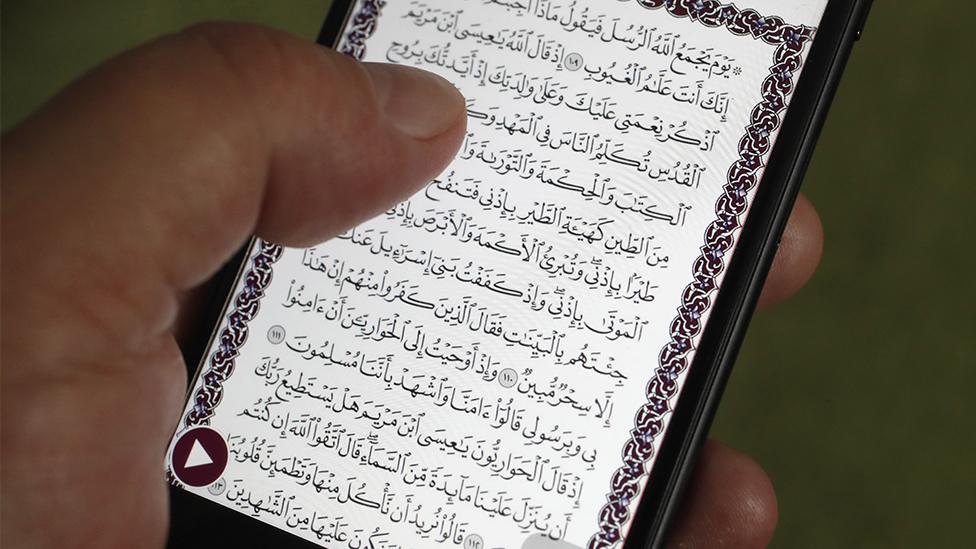 ۞ يَوْمَ يَجْمَعُ ٱللَّهُ ٱلرُّسُلَ فَيَقُولُ مَاذَآ أُجِبْتُمْ
إِنَّكَ أَنتَ عَلَّٰمُ ٱلْغُيُوبِ ١٠٩ إِذْ قَالَ ٱللَّهُ يَٰعِيسَى ٱبْنَ مَرْيَمَ
ٱذْكُرْ نِعْمَتِي عَلَيْكَ وَعَلَىٰ وَٰلِدَتِكَ إِذْ أَيَّدتُّكَ بِرُوحِ
ٱلْقُدُسِ تُكَلِّمُ ٱلنَّاسَ فِي ٱلْمَهْدِ
ٱلْكِتَٰبَ وَٱلْحِكْمَةَ وَٱلتَّوْرَىٰةَ
مِنَ ٱلطِّينِ كَهَيْـَٔةِ ٱلطَّيْرِ بِإِذْنِي فَتَنفُخُ
طَيْرَۢا بِإِذْنِيۖ وَتُبْرِئُ ٱلْأَكْمَهَ وَٱلْأَبْرَصَ بِإِذْنِي
ٱلْمَوْتَىٰ بِإِذْنِيۖ وَإِذْ كَفَفْتُ بَنِيٓ إِسْرَٰٓءِيلَ عَنكَ
جِئْتَهُم بِٱلْبَيِّنَٰتِ فَقَالَ ٱلَّذِينَ كَفَرُوا۟ مِنْهُمْ إِنْ هَٰذَآ
إِلَّا سِحْرٌ مُّبِينٌ ١١٠ وَإِذْ أَوْحَيْتُ إِلَى ٱلْحَوَارِيِّـۧنَ أَنْ ءَامِنُوا۟
بِي وَبِرَسُولِي قَالُوٓا۟ ءَامَنَّا وَٱشْهَدْ بِأَنَّنَا مُسْلِمُونَ ١١١
إِذْ قَالَ ٱلْحَوَارِيُّونَ يَٰعِيسَى ٱبْنَ مَرْيَمَ هَلْ يَسْتَطِيعُ رَبُّكَ
أَن يُنَزِّلَ عَلَيْنَا مَآئِدَةً مِّنَ ٱلسَّمَآءِۖ قَالَ ٱتَّقُوا۟ ٱللَّهَ إِن كُنتُم
١١٢ قَالُوا۟ نُرِيدُ أَن نَّأْكُلَ مِنْهَا وَتَطْمَئِنَّ قُلُوبُنَا
وَنَكُونَ عَلَيْهَا مِنَ ٱلشَّٰهِدِينَ ١١٣